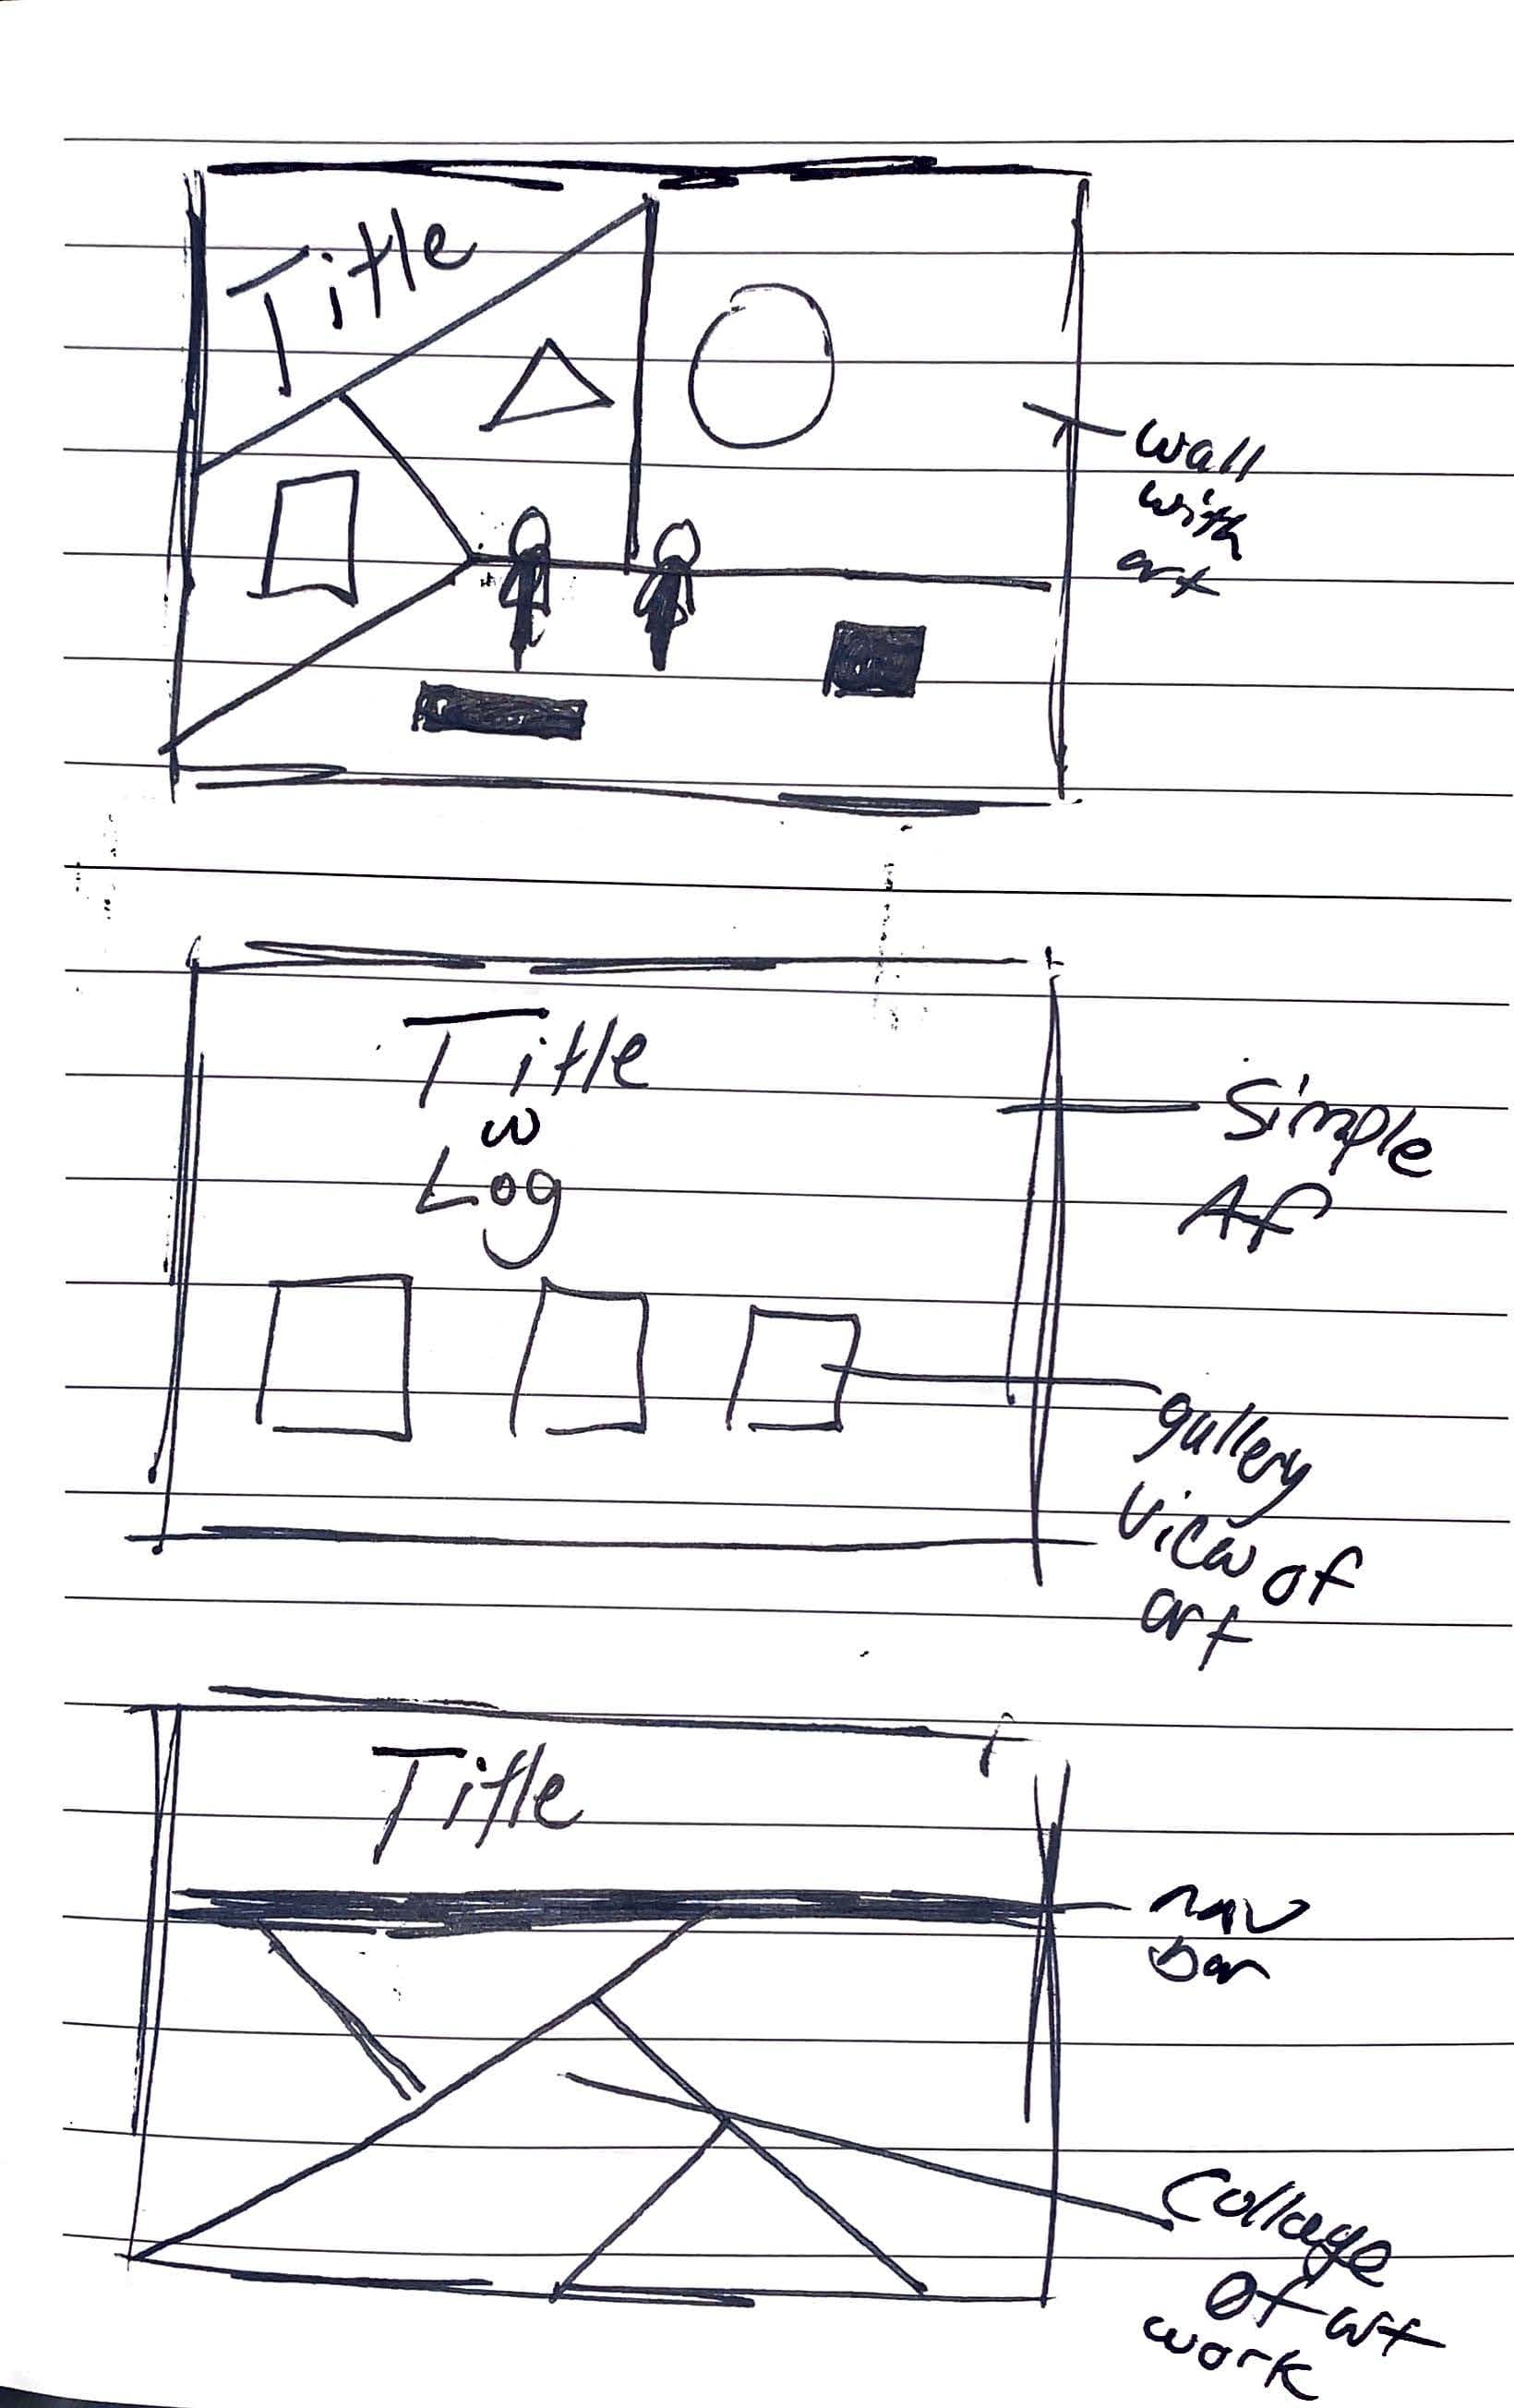 Title
wall
with
art
Title
w
Log
Simple
Af
gallery
view of
art
Title
nav
bar
Collage
of art
work